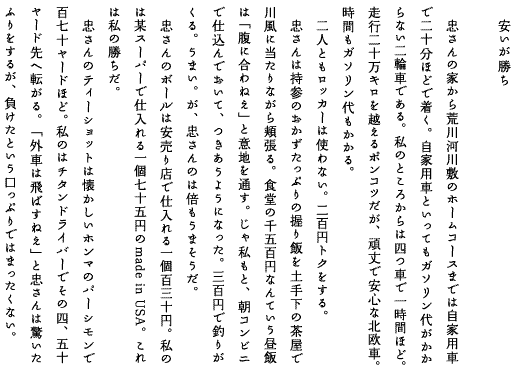 安いが勝ち
忠さんの家から荒川河川敷のホームコースまでは自家用車
で二十分ほどで着く。自家用車といってもガソリン代がかか
らない二輪車である。私のところからは四つ車で一時間ほど。
走行二十万キロを越えるポンコツだが、頑丈で安心な北欧車。
時間もガソリン代もかかる。
二人ともロッカーは使わない。二百円トクをする。
忠さんは持参のおかずたっぷりの握り飯を土手下の茶屋で
川風に当たりながら頰張る。食堂の千五百円なんていう昼飯
は「腹に合わねえ」と意地を通す。じゃ私もと、朝コンビニ
で仕込んでおいて、つきあうようになった。三百円で釣りが
くる。うまい。が、忠さんのは倍もうまそうだ。
忠さんのボールは安売り店で仕入れる一個百三十円。私の
は某スーパーで仕入れる一個七十五円のmade in USA。これ
は私の勝ちだ。
忠さんのティーショットは懐かしいホンマのパーシモンで
百七十ヤードほど。私のはチタンドライバーでその四、五十
ヤード先へ転がる。「外車は飛ばすねえ」と忠さんは驚いた
ふりをするが、負けたという口っぷりではまったくない。